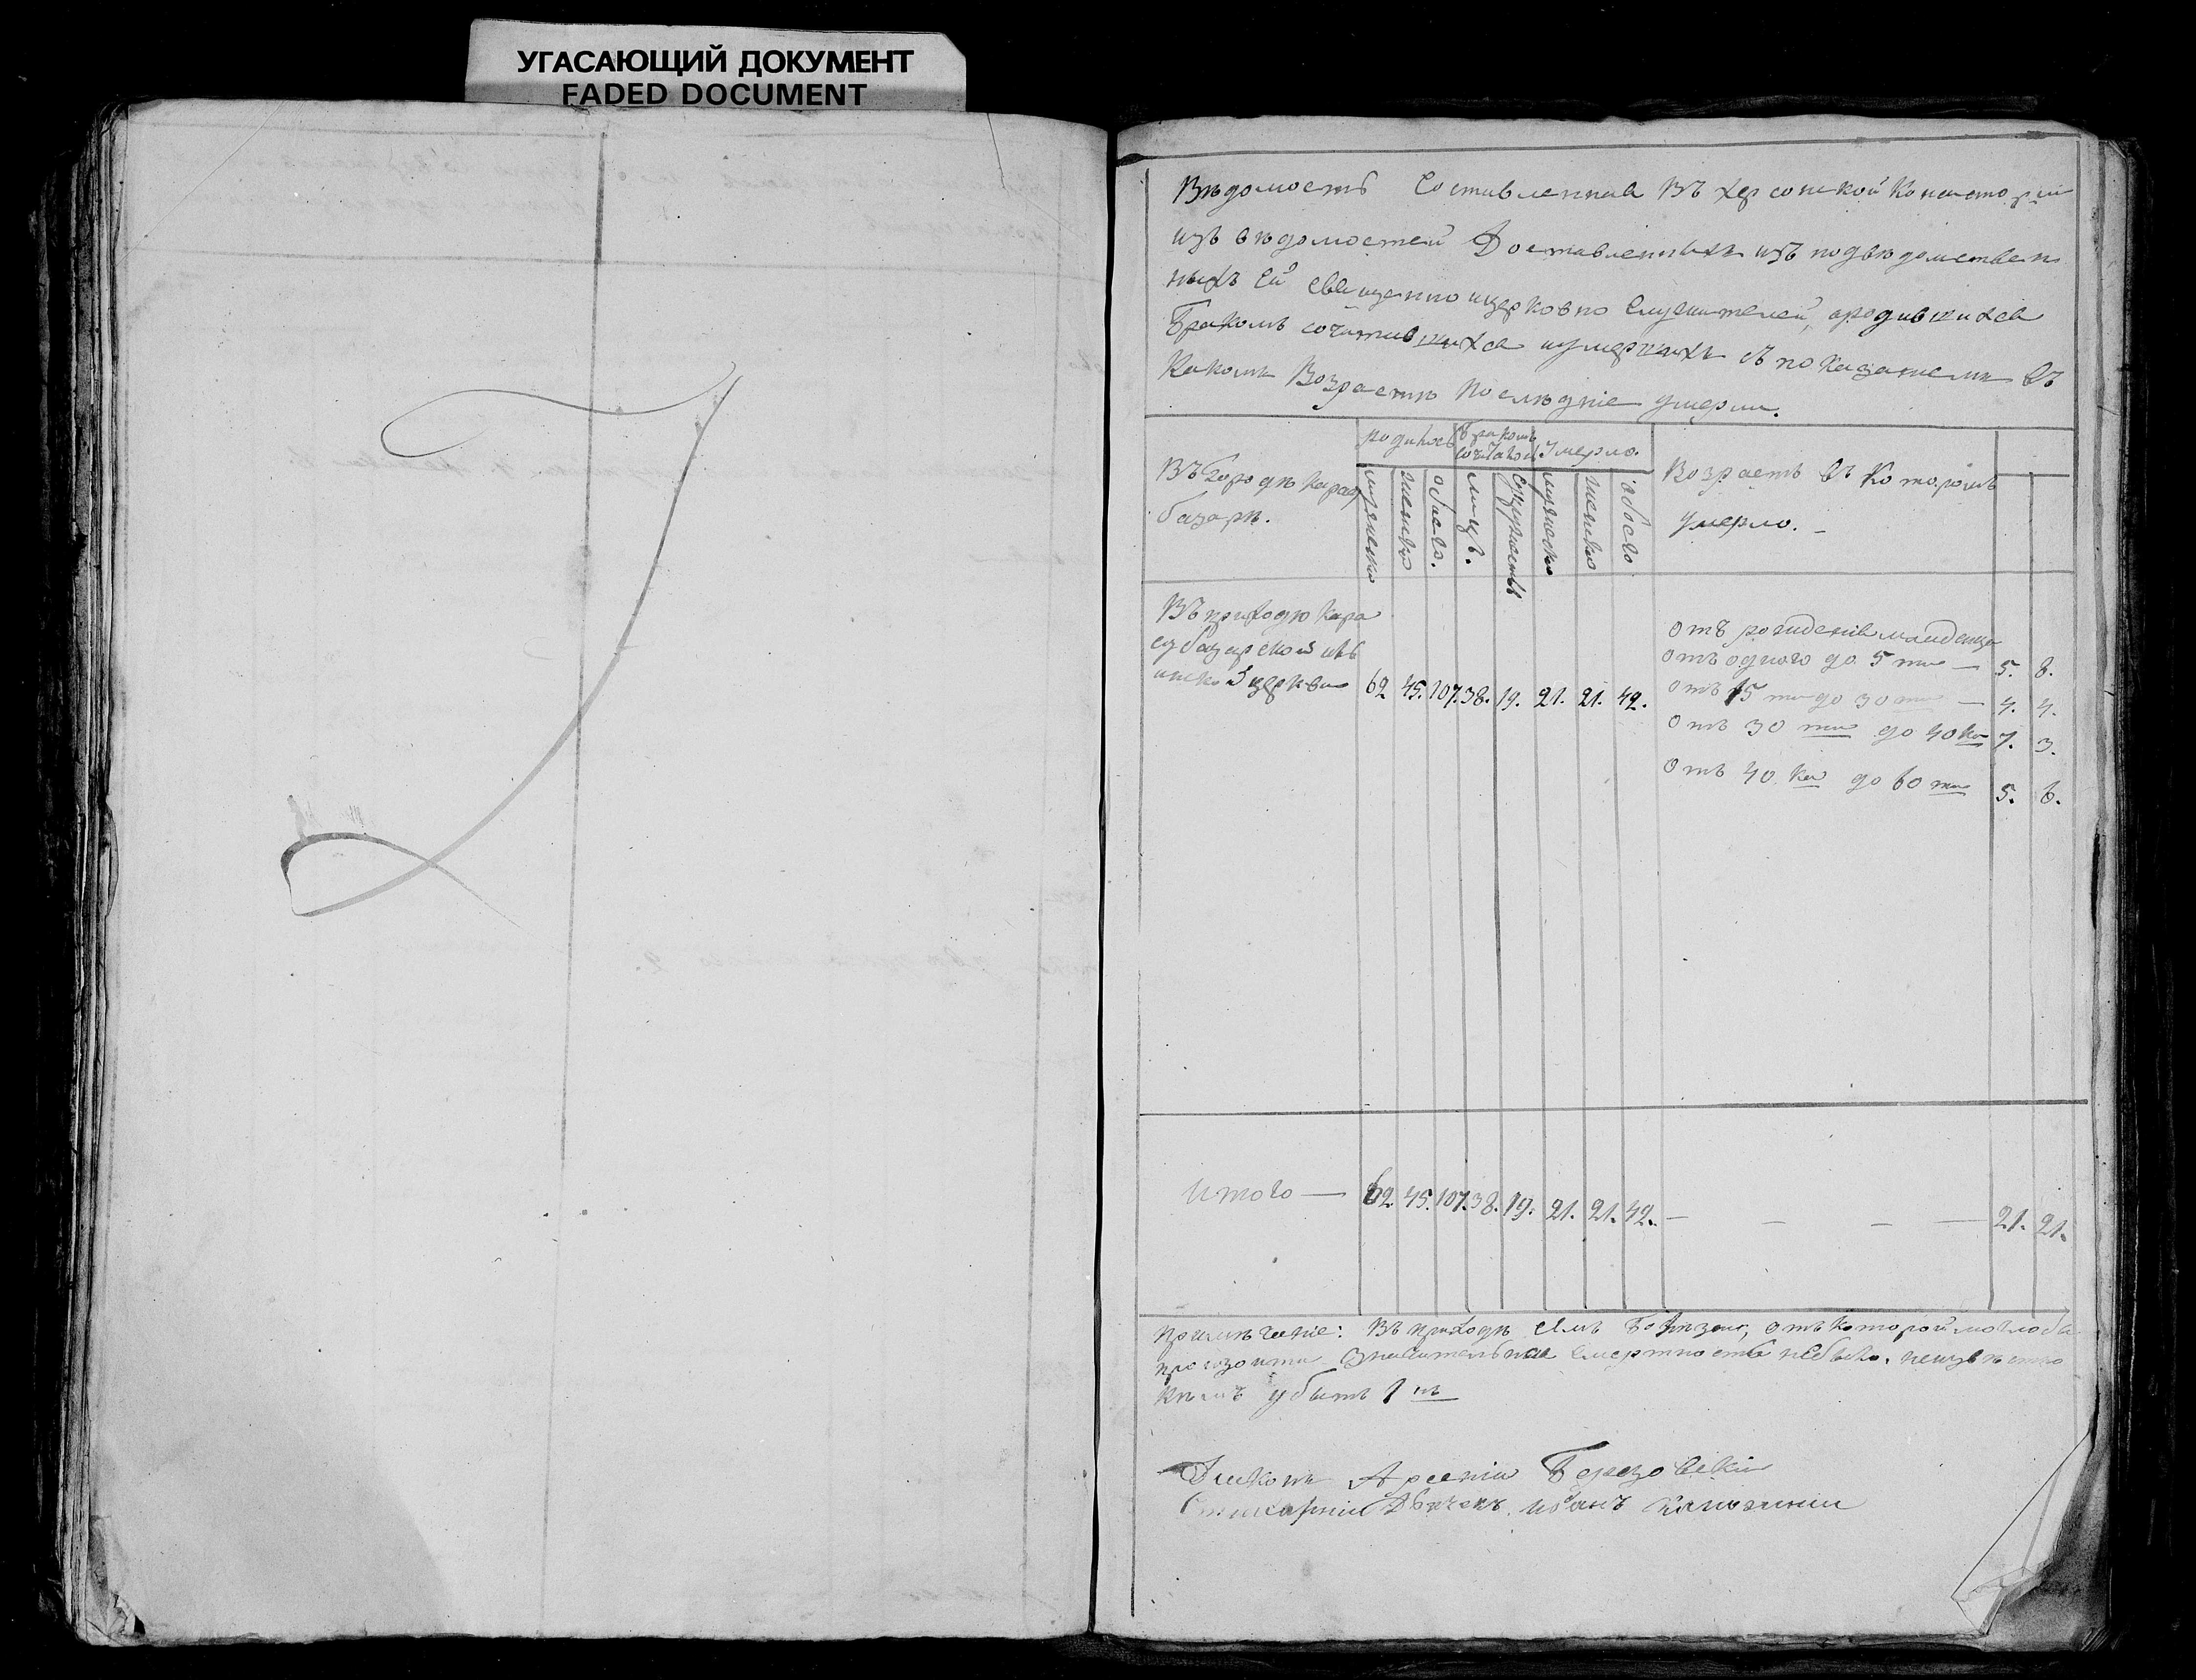 УГАСАЮЩИЙ ДОКУМЕНТ
FADED DOCUMENT
Вѣдомость Составленная Въ херсонской Консисторіи
изъ вѣдомостей Доставленныхъ изъ подвѣдомствен
ныхъ Ей священно ицерковно Служителей, ородившихся
бракомъ сочитавшихся иумершихъ съ показаніемъ въ
Какомъ Возрастѣ Послѣдніе умерли.
Въ Городѣ Карасу
базарѣ.
родилось
бракомъ
сочитались
Умерло.
Возрастъ въ Которомъ
умерло. —
мужеско
женско
обоего.
лицъ.
супружествъ
мужеско
женско
обоего
Въ приходѣ Кара
субазарской
церкви 62 45. 107. 38. 19. 21. 21. 42.
отъ рожденія младенца
отъ одного до 5 ти — 5. 8.
отъ 15 ти до 30 ти — 4. 4.
отъ 30 ти до 40 ка 7. 3.
отъ 40 ка до 60 ти 5. 6.
Итого — 62 45. 107. 38. 19. 21. 21. 42. — — — — 21. 21.
Примѣчаніе: Въ приходѣ Семъ болѣзни, отъ которой моглобы
произойти значительная Смертность небыло. неизвѣстно
кѣмъ убитъ 1 нъ
Диаконъ Арсеній Березовскій
Дьячекъ Иоанъ